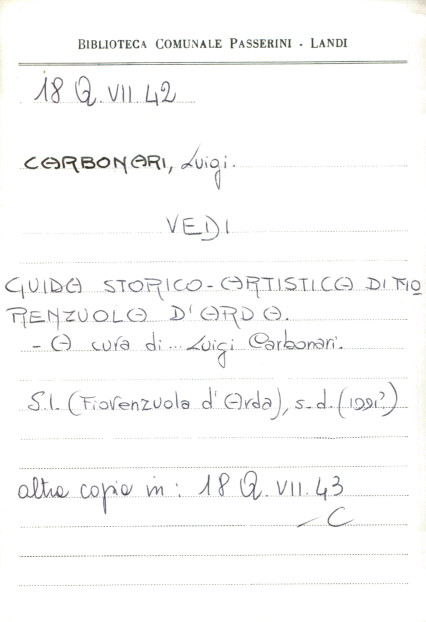 BIBLIOTECA COMUNALE PASSERINI - LANDI
18 Q. VII. 42
CARBONARI, Luigi.
VEDI
GUIDA STORICO-ARTISTICA DI FIO
RENZUOLA D'ARDA.
- A cura di... Luigi Carbonari.
S.l. (Fiorenzuola d'Arda), s.d. (1991?)
altra copia in: 18 Q. VII. 43
— C